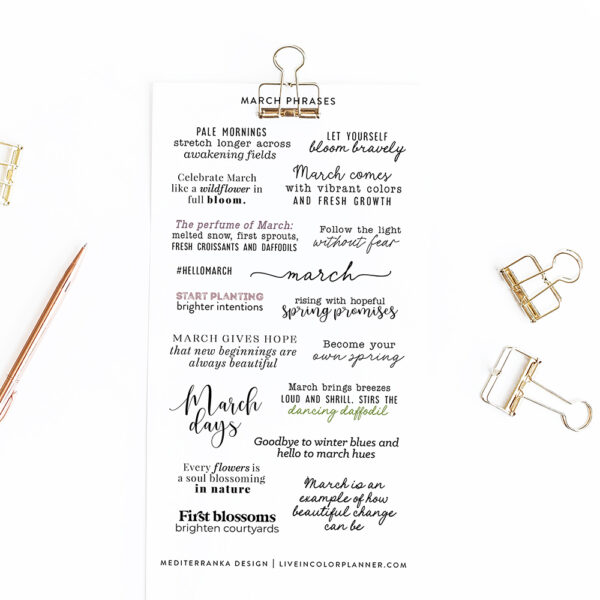 MARCH PHRASES
PALE MORNINGS
stretch longer across
awakening fields
LET YOURSELF
bloom bravely
Celebrate March
like a wildflower in
full bloom.
March comes
with vibrant colors
AND FRESH GROWTH
The perfume of March:
melted snow, first sprouts,
FRESH CROISSANTS AND DAFFODILS
Follow the light
without fear
#HELLOMARCH
march
START PLANTING
brighter intentions
rising with hopeful
spring promises
MARCH GIVES HOPE
that new beginnings are
always beautiful
Become your
own spring
March
days
March brings breezes
LOUD AND SHRILL, STIRS THE
dancing daffodil
Goodbye to winter blues and
hello to march hues
Every flowers is
a soul blossoming
in nature
March is an
example of how
beautiful change
can be
First blossoms
brighten courtyards
MEDITERRANKA DESIGN | LIVEINCOLORPLANNER.COM